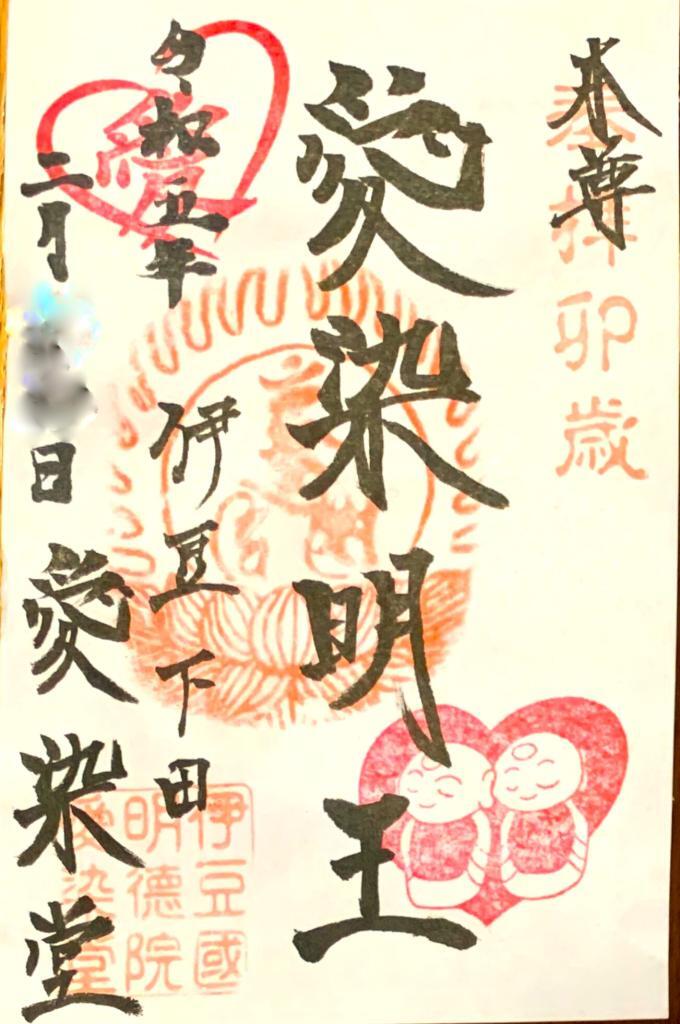 本尊
奉拝卯歳
愛染明王
伊豆下田
令和五年
二月
日
愛染堂
縁
伊豆國
明徳院
愛染堂